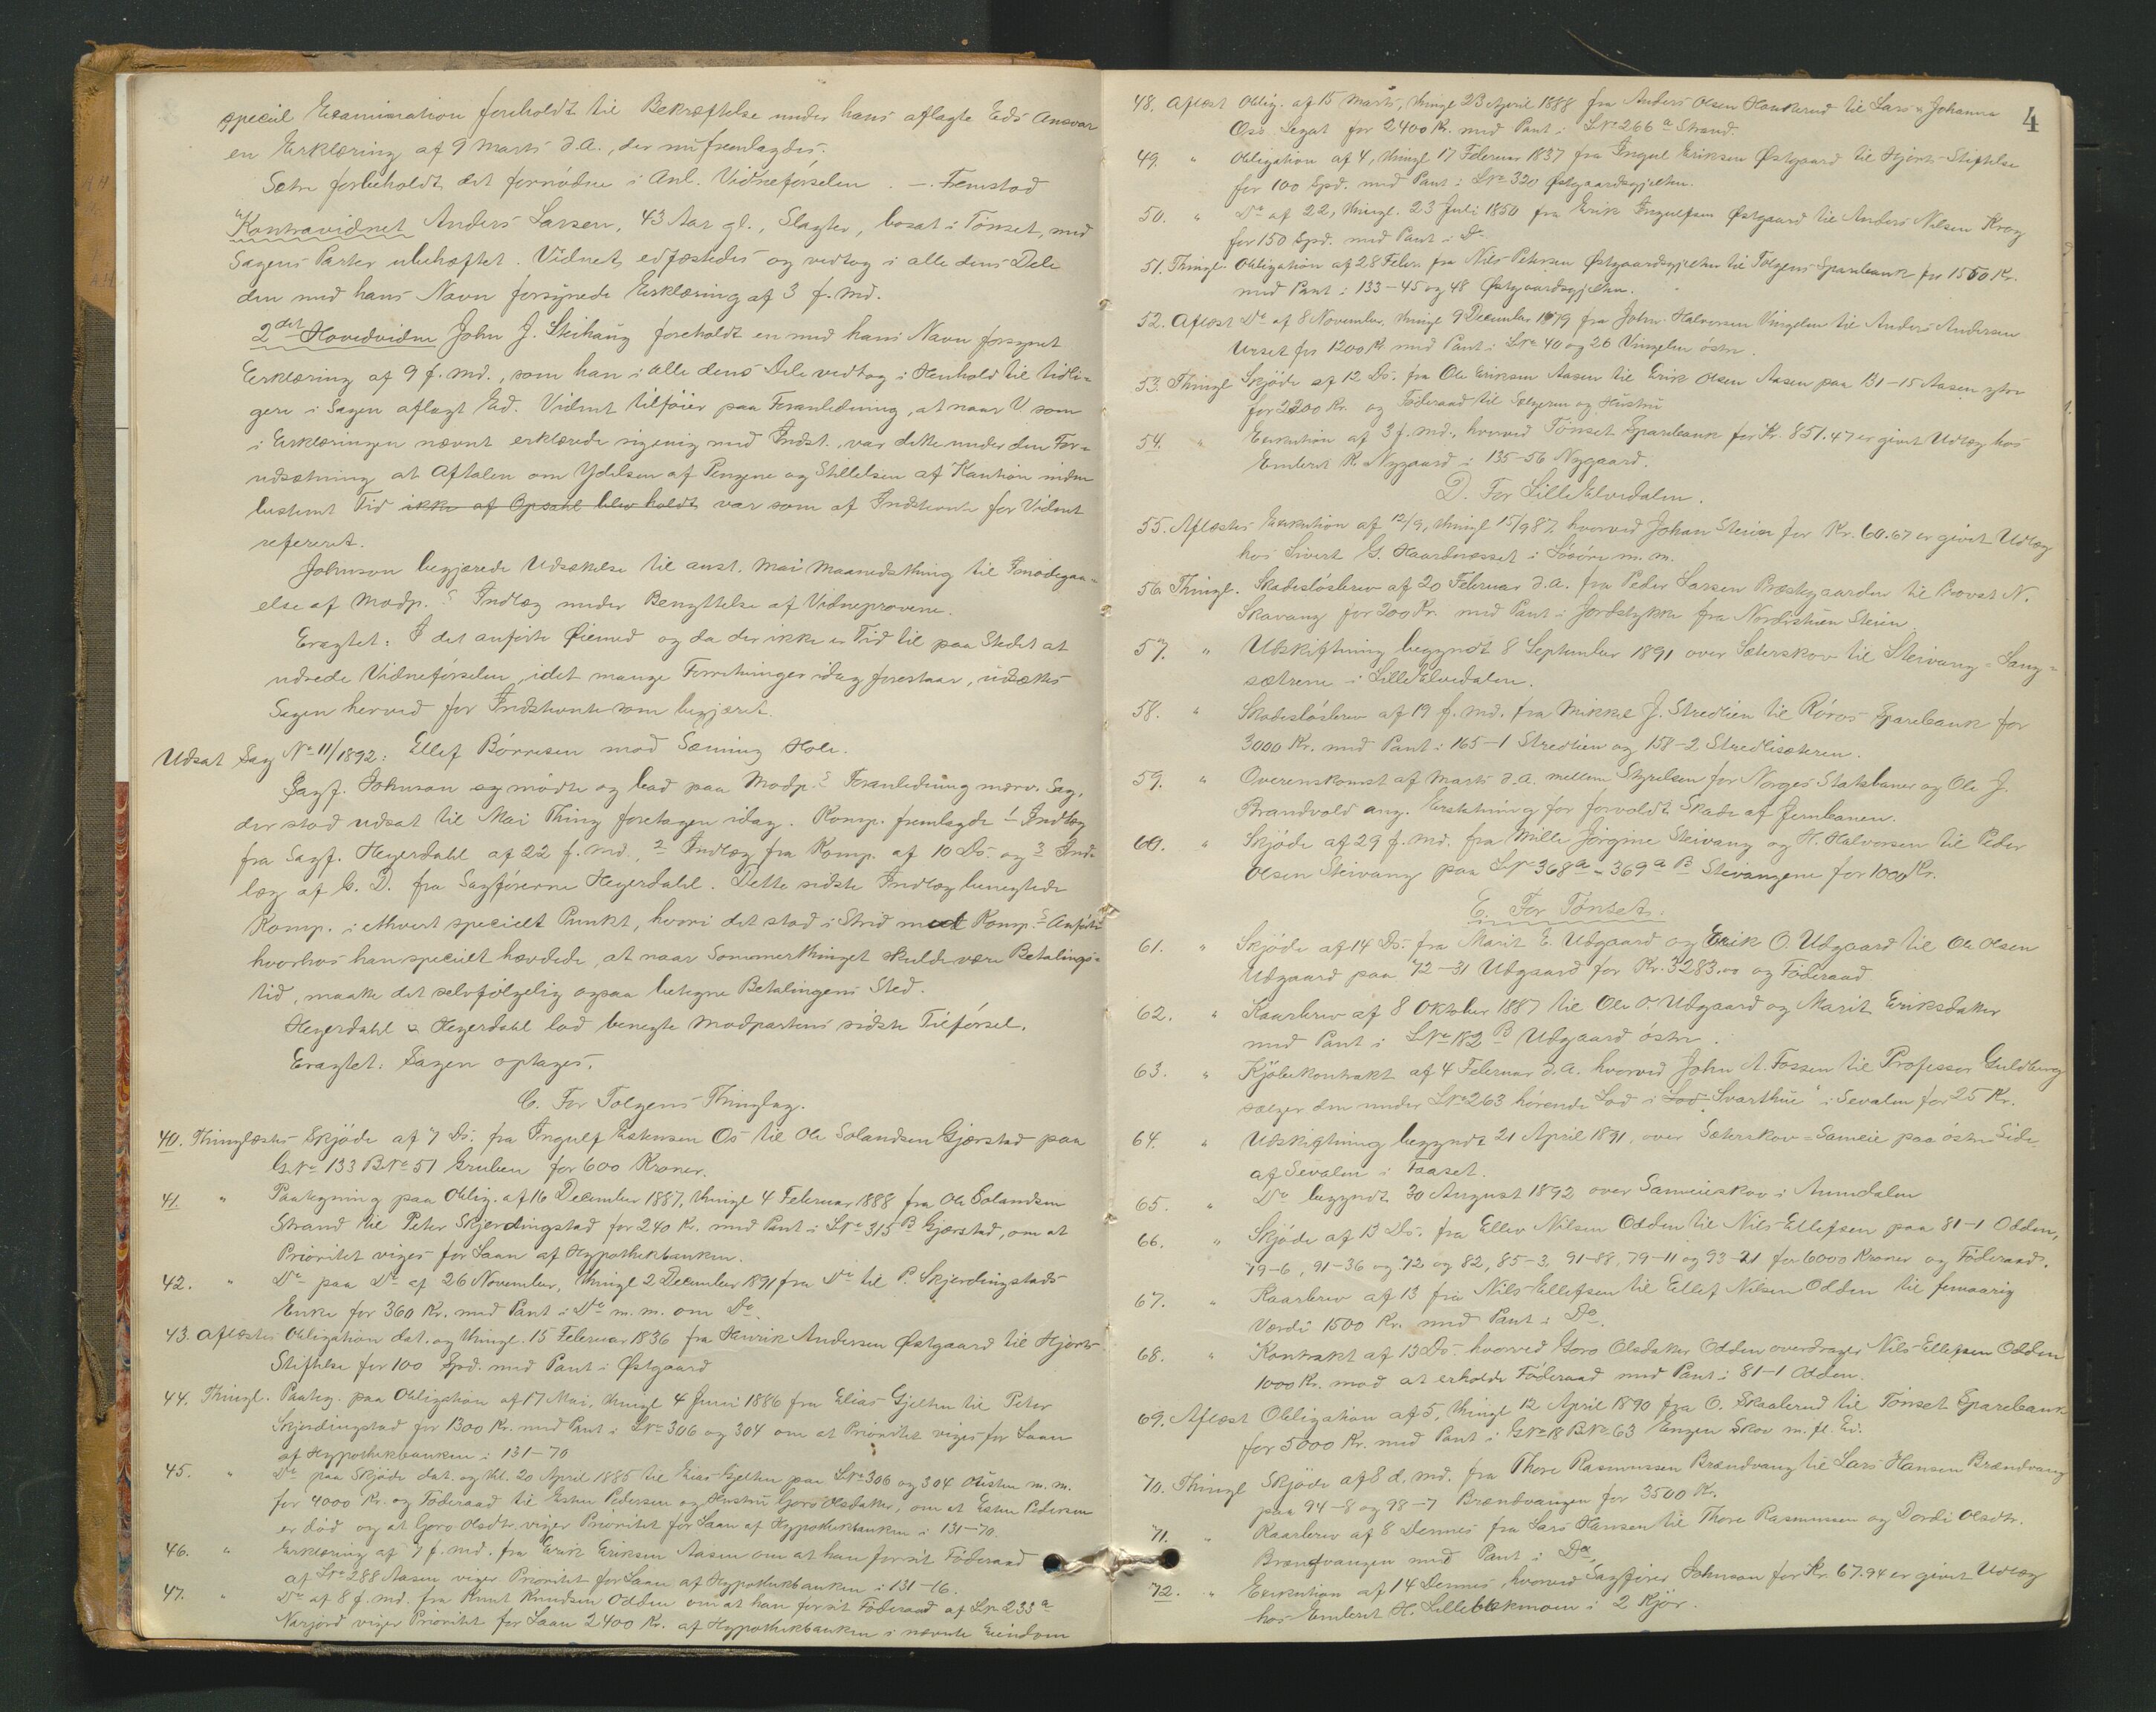 speciel Examination foreholdt til Bekræftelse under hans aflagte Eds Ansvar
en Erklæring af 9 Marts d.A., der nu fremlagdes.
Sætre forbeholdt det fornødne i Anl. Vidneførselen. —. Fremstod
Kontravidnet Anders Larsen, 43 Aar gl., Slagter, bosat i Tønset, med
Sagens Parter ubehæftet. Vidnet edfæstedes og vedtog i alle dens Dele
den med hans Navn forsynede Erklæring af 3 f. Md.
2det Hovedvidne John J. Steihaug foreholdt en med hans Navn forsynet
Erklæring af 9 f. Md., som han i alle dens Dele vedtog i Henhold til tidli-
gere i Sagen aflagt Ed. Vidnet tilføier paa Foranledning, at naar V. som
i Erklæringen nævnt erklærede sig enig med Indst., var dette under den For-
udsætning at Aftalen om Ydelsen af Pengene og Stillelsen af Kaution inden
bestemt Tid ikke af Opsahl blev holdt var som af Indstevnte for Vidnet
refereret.
Johnson begjærede Udsættelse til anst. Mai Maanedsthing til Imødegaa-
else af Modp.s Indlæg under Benyttelse af Vidneprovene.
Eragtet: I det anførte Øiemed og da der ikke er Tid til paa Stedet at
udrede Vidneførselen, idet mange Forretninger idag forestaar, udsættes
Sagen herved for Indstevnte som begjæret.
Udsat Sag No 11/1892: Ellef Børresen mod Sæming Hole.
Sagf. Johnson og mødte og bad paa Modp.s Foranledning nærv. Sag,
der stod udsat til Mai Thing foretagen idag. Komp. fremlagde 1 Indlæg
fra Sagf. Heyerdahl af 22 f. Md., 2 Indlæg fra Komp. af 10 Ds. og 3 Ind-
læg af G. D. fra Sagførerne Heyerdahl. Dette sidste Indlæg benegtede
Komp. i ethvert specielt Punkt, hvori det stod i Strid med Komp.s Anførte
hvorhos han specielt hævdede, at naar Sommerthinget skulde være Betalings-
tid, maatte det selvfølgelig ogsaa betegne Betalingens Sted.
Heyerdahl & Heyerdahl lod benegte Modpartens sidste Tilførsel.
Eragtet: Sagen optages.
C. For Tolgens Thinglag.
40. Thinglæstes Skjøde af 7 Ds. fra Ingulf Estensen Os til Ole Solandsen Gjærstad paa
G.No 133 B.No 51 Gruben for 600 Kroner.
41. " Paategning paa Oblig. af 16 December 1887, thingl 4 Februar 1888 fra Ole Solandsen
Strand til Peter Skjerdingstad for 240 Kr. med Pant i LNo 315 B Gjærstad, om at
Prioritet viges for Laan af Hypothekbanken.
42. " Do paa Do af 26 November, thingl 2 December 1891 fra Do til P. Skjerdingstads
Enke for 360 Kr. med Pant i Do m. m. om Do.
43. Aflæstes Obligation dat. og thingl. 15 Februar 1836 fra Henrik Andersen Østgaard til Hjorts
Stiftelse for 100 Spd. med Pant i Østgaard
44. Thingl. Paateg. paa Obligation af 17 Mai, thingl 4 Juni 1886 fra Elias Gjelten til Peter
Skjerdingstad for 1300 Kr. med Pant i LNo 306 og 304 om at Prioritet viges for Laan
af Hypothekbanken i 131–70
45. " Do paa Skjøde dat. og thl. 20 April 1885 til Elias Gjelten paa LNo 306 og 304 m. m.
for 4000 Kr. og Føderaad til Esten Pedersen og Hustru Goro Olsdatter, om at Esten Pedersen
er død og at Goro Olsdtr. viger Prioritet for Laan af Hypothekbanken i 131–70.
46. " Erklæring af 7 f. Md. fra Erik Eriksen Aasen om at han for sit Føderaad
af LNo 288 Aasen viger Prioritet for Laan af Hypothekbanken i 131–16.
47. " Do af 8 f. Md. fra Knut Knudsen Odden om at han for sit Føderaad af LNo 233 a
Narjord viger Prioritet for Laan 2400 Kr. af Hypothekbanken i nævnte Eiendom
4
48. Aflæst Oblig. af 15 Marts, thingl 23 April 1888 fra Anders Olsen Hankerud til Lars & Johanna
Oss Legat for 2400 Kr. med Pant i LNo 266 a Strand.
49. " Obligation af 4, thingl 17 Februar 1837 fra Ingul Eriksen Østgaard til Hjorts Stiftelse
for 100 Spd. med Pant i LNo 320 Østgaardsgjelten.
50. " Do af 22, thingl. 23 Juli 1850 fra Erik Ingulfsen Østgaard til Anders Nilsen Krog
for 150 Spd. med Pant i Do
51. Thingl. Obligation af 28 Febr. fra Nils Petersen Østgaardsgjelten til Tolgens Sparebank for 1550 Kr.
med Pant i 133–45 og 48 Østgaardsgjelten.
52. Aflæst Do af 8 November, thingl 9 December 1879 fra John Halvorsen Vingelen til Anders Andersen
Urset for 1200 Kr. med Pant i LNo 40 og 26 Vingelen østre.
53. Thingl Skjøde af 12 Ds. fra Ole Eriksen Aasen til Erik Olsen Aasen paa 131–15 Aasen ytre
for 2200 Kr. og Føderaad til Sælgeren og Hustru
54. " Exekution af 3 f. Md., hvorved Tønset Sparebank for Kr. 851.47 er givet Udlæg hos
Embret K. Nygaard i 135–56 Nygaard.
D. For Lille Elvedalen.
55. Aflæstes Exekution af 12/9, thingl 15/9 87 hvorved Johan Steien for Kr. 60.67 er givet Udlæg
hos Sivert G. Haardnæsset i Løsøre m. m.
56. Thingl. Skadesløsbrev af 20 Februar d.A. fra Peder Larsen Præstegaarden til Provst N.
Skavang for 200 Kr. med Pant i Jordstykke fra Nordistuen Steien.
57. " Udskiftning begyndt 8 September 1891 over Sæterskov til Steivang-Lang-
sætrene i Lille Elvedalen.
58. " Skadesløsbrev af 19 f. Md. fra Mikkel J. Stredlien til Røros Sparebank for
3000 Kr. med Pant i 165–1 Stredlien og 158–2 Stredlisæteren.
59. " Overenskomst af Marts d.A. mellem Styrelsen for Norges Statsbaner og Ole J.
Brandvold ang. Erstatning for forvoldt Skade af Jernbanen.
60. " Skjøde af 29 f. Md. fra Mille Jørgine Steivang og H. Halvorsen til Peder
Olsen Steivang paa LNo 368 a – 369 a B Steivangene for 1000 Kr.
E. For Tønset.
61. " Skjøde af 14 Ds. fra Marit E. Udgaard og Erik O. Udgaard til Ole Olsen
Udgaard paa 72–31 Udgaard for Kr. 3283.00 og Føderaad
62. " Kaarbrev af 8 Oktober 1887 til Ole O. Udgaard og Marit Eriksdatter
med Pant i LNo 182 B Udgaard østre.
63. " Kjøbekontrakt af 4 Februar d.A. hvorved John A. Fossen til Professor Guldberg
sælger den under LNo 263 hørende Lod i Lod "Svarthue" i Sevalen for 25 Kr.
64. " Udskiftning begyndt 21 April 1891, over Sæterskov-Sameie paa østre Side
af Sevalen i Faaset.
65. " Do begyndt 30 August 1892 over Sameieskov i Aumdalen
66. " Skjøde af 13 Ds. fra Ellev Nilsen Odden til Nils Ellefsen paa 81–1 Odden,
79–6, 91–36 og 72 og 82, 85–3, 91–88, 79–11 og 93–21 for 6000 Kroner og Føderaad.
67. " Kaarbrev af 13 fra Nils Ellefsen til Ellef Nilsen Odden til femaarig
Værdi 1500 Kr. med Pant i Do.
68. " Kontrakt af 13 Ds. hvorved Goro Olsdatter Odden overdrages Nils Ellefsen Odden
1000 Kr. mod at erholde Føderaad med Pant i 81–1 Odden.
69. Aflæst Obligation af 5, thingl 12 April 1890 fra O. Skaalerud til Tønset Sparebank
for 5000 Kr. med Pant i GNo 18 BNo 63 Engen Skov m. fl. Ei.
70. Thingl Skjøde af 8 d. Md. fra Thore Rasmussen Brændvang til Lars Hansen Brændvang
paa 94–8 og 98–7 Brændvangen for 3500 Kr.
71. " Kaarbrev af 8 Dennes fra Lars Hansen til Thore Rasmussen og Dordi Olsdtr.
Brændvangen med Pant i Do.
72. " Exekution af 14 Dennes, hvorved Sagfører Johnson for Kr. 67.94 er givet Udlæg
hos Embret H. Lillebækmoen i 2 Kjør.